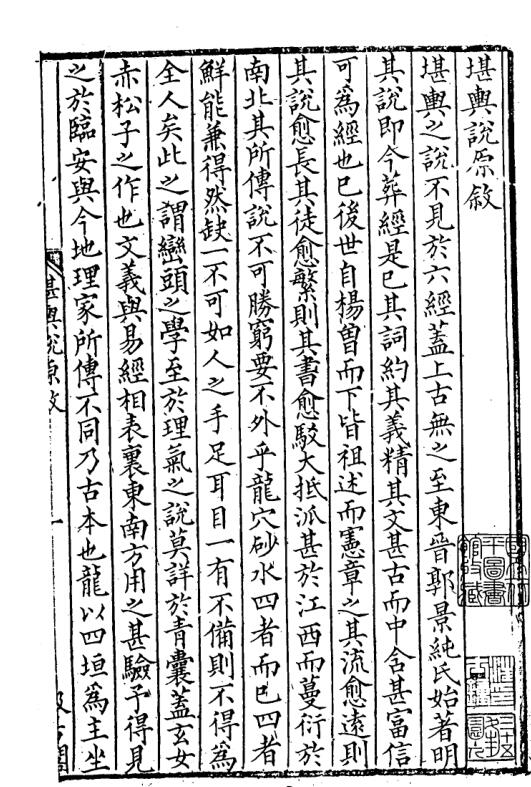 堪輿說原敘
堪輿之說不見於六經蓋上古無之至東晉郭景純氏始著明
其說即今葬經是巳其詞約其義精其文甚古而中含甚富信
可為經也巳後世自楊曾而下皆祖述而憲章之其流愈遠則
其說愈長其徒愈繁則其書愈駁大抵派甚於江西而蔓衍於
南北其所傳說不可勝窮要不外乎龍穴砂水四者而巳四者
鮮能兼得然缺一不可如人之手足耳目一有不備則不得為
全人矣此之謂巒頭之學至於理氣之說莫詳於青囊蓋玄女
赤松子之作也文義與易經相表裏東南方用之甚驗予得見
之於臨安與今地理家所傳不同乃古本也龍以四垣為主坐
堪輿說原敘 一